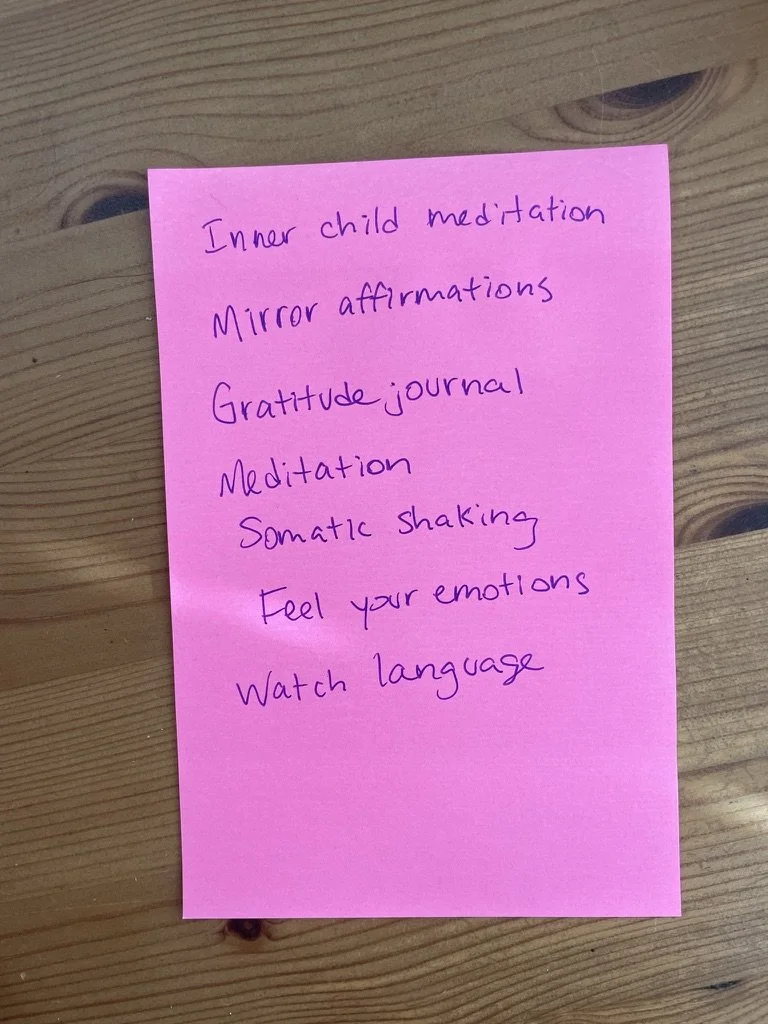 Inner child meditation
Mirror affirmations
Gratitude journal
Meditation
Somatic shaking
Feel your emotions
Watch language